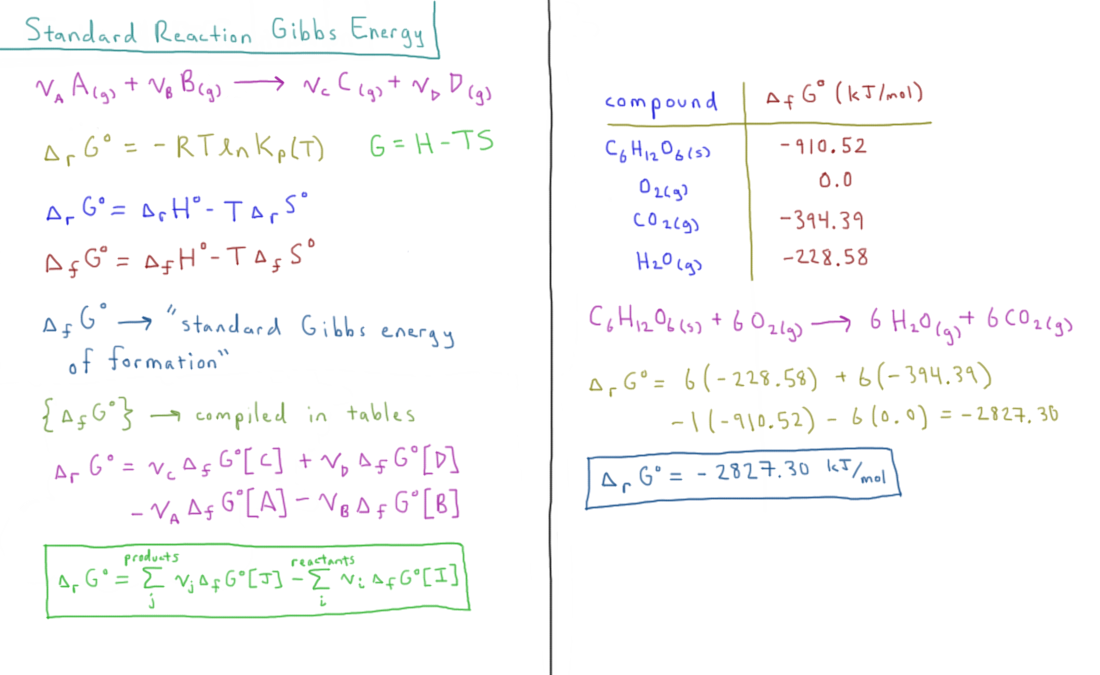 Standard Reaction Gibbs Energy
ν_A A(g) + ν_B B(g) → ν_c C(g) + ν_D D(g)
Δ_r G° = - RT ln K_p(T) G = H - TS
Δ_r G° = Δ_r H° - T Δ_r S°
Δ_f G° = Δ_f H° - T Δ_f S°
Δ_f G° → "standard Gibbs energy
of formation"
{Δ_f G°} → compiled in tables
Δ_r G° = ν_c Δ_f G°[C] + ν_D Δ_f G°[D]
- ν_A Δ_f G°[A] - ν_B Δ_f G°[B]
products reactants
Δ_r G° = Σ ν_j Δ_f G°[J] - Σ ν_i Δ_f G°[I]
j i
compound Δ_f G° (kJ/mol)
C₆H₁₂O₆(s) -910.52
O₂(g) 0.0
CO₂(g) -394.39
H₂O(g) -228.58
C₆H₁₂O₆(s) + 6 O₂(g) → 6 H₂O(g) + 6 CO₂(g)
Δ_r G° = 6(-228.58) + 6(-394.39)
-1(-910.52) - 6(0.0) = -2827.30
Δ_r G° = - 2827.30 kJ/mol